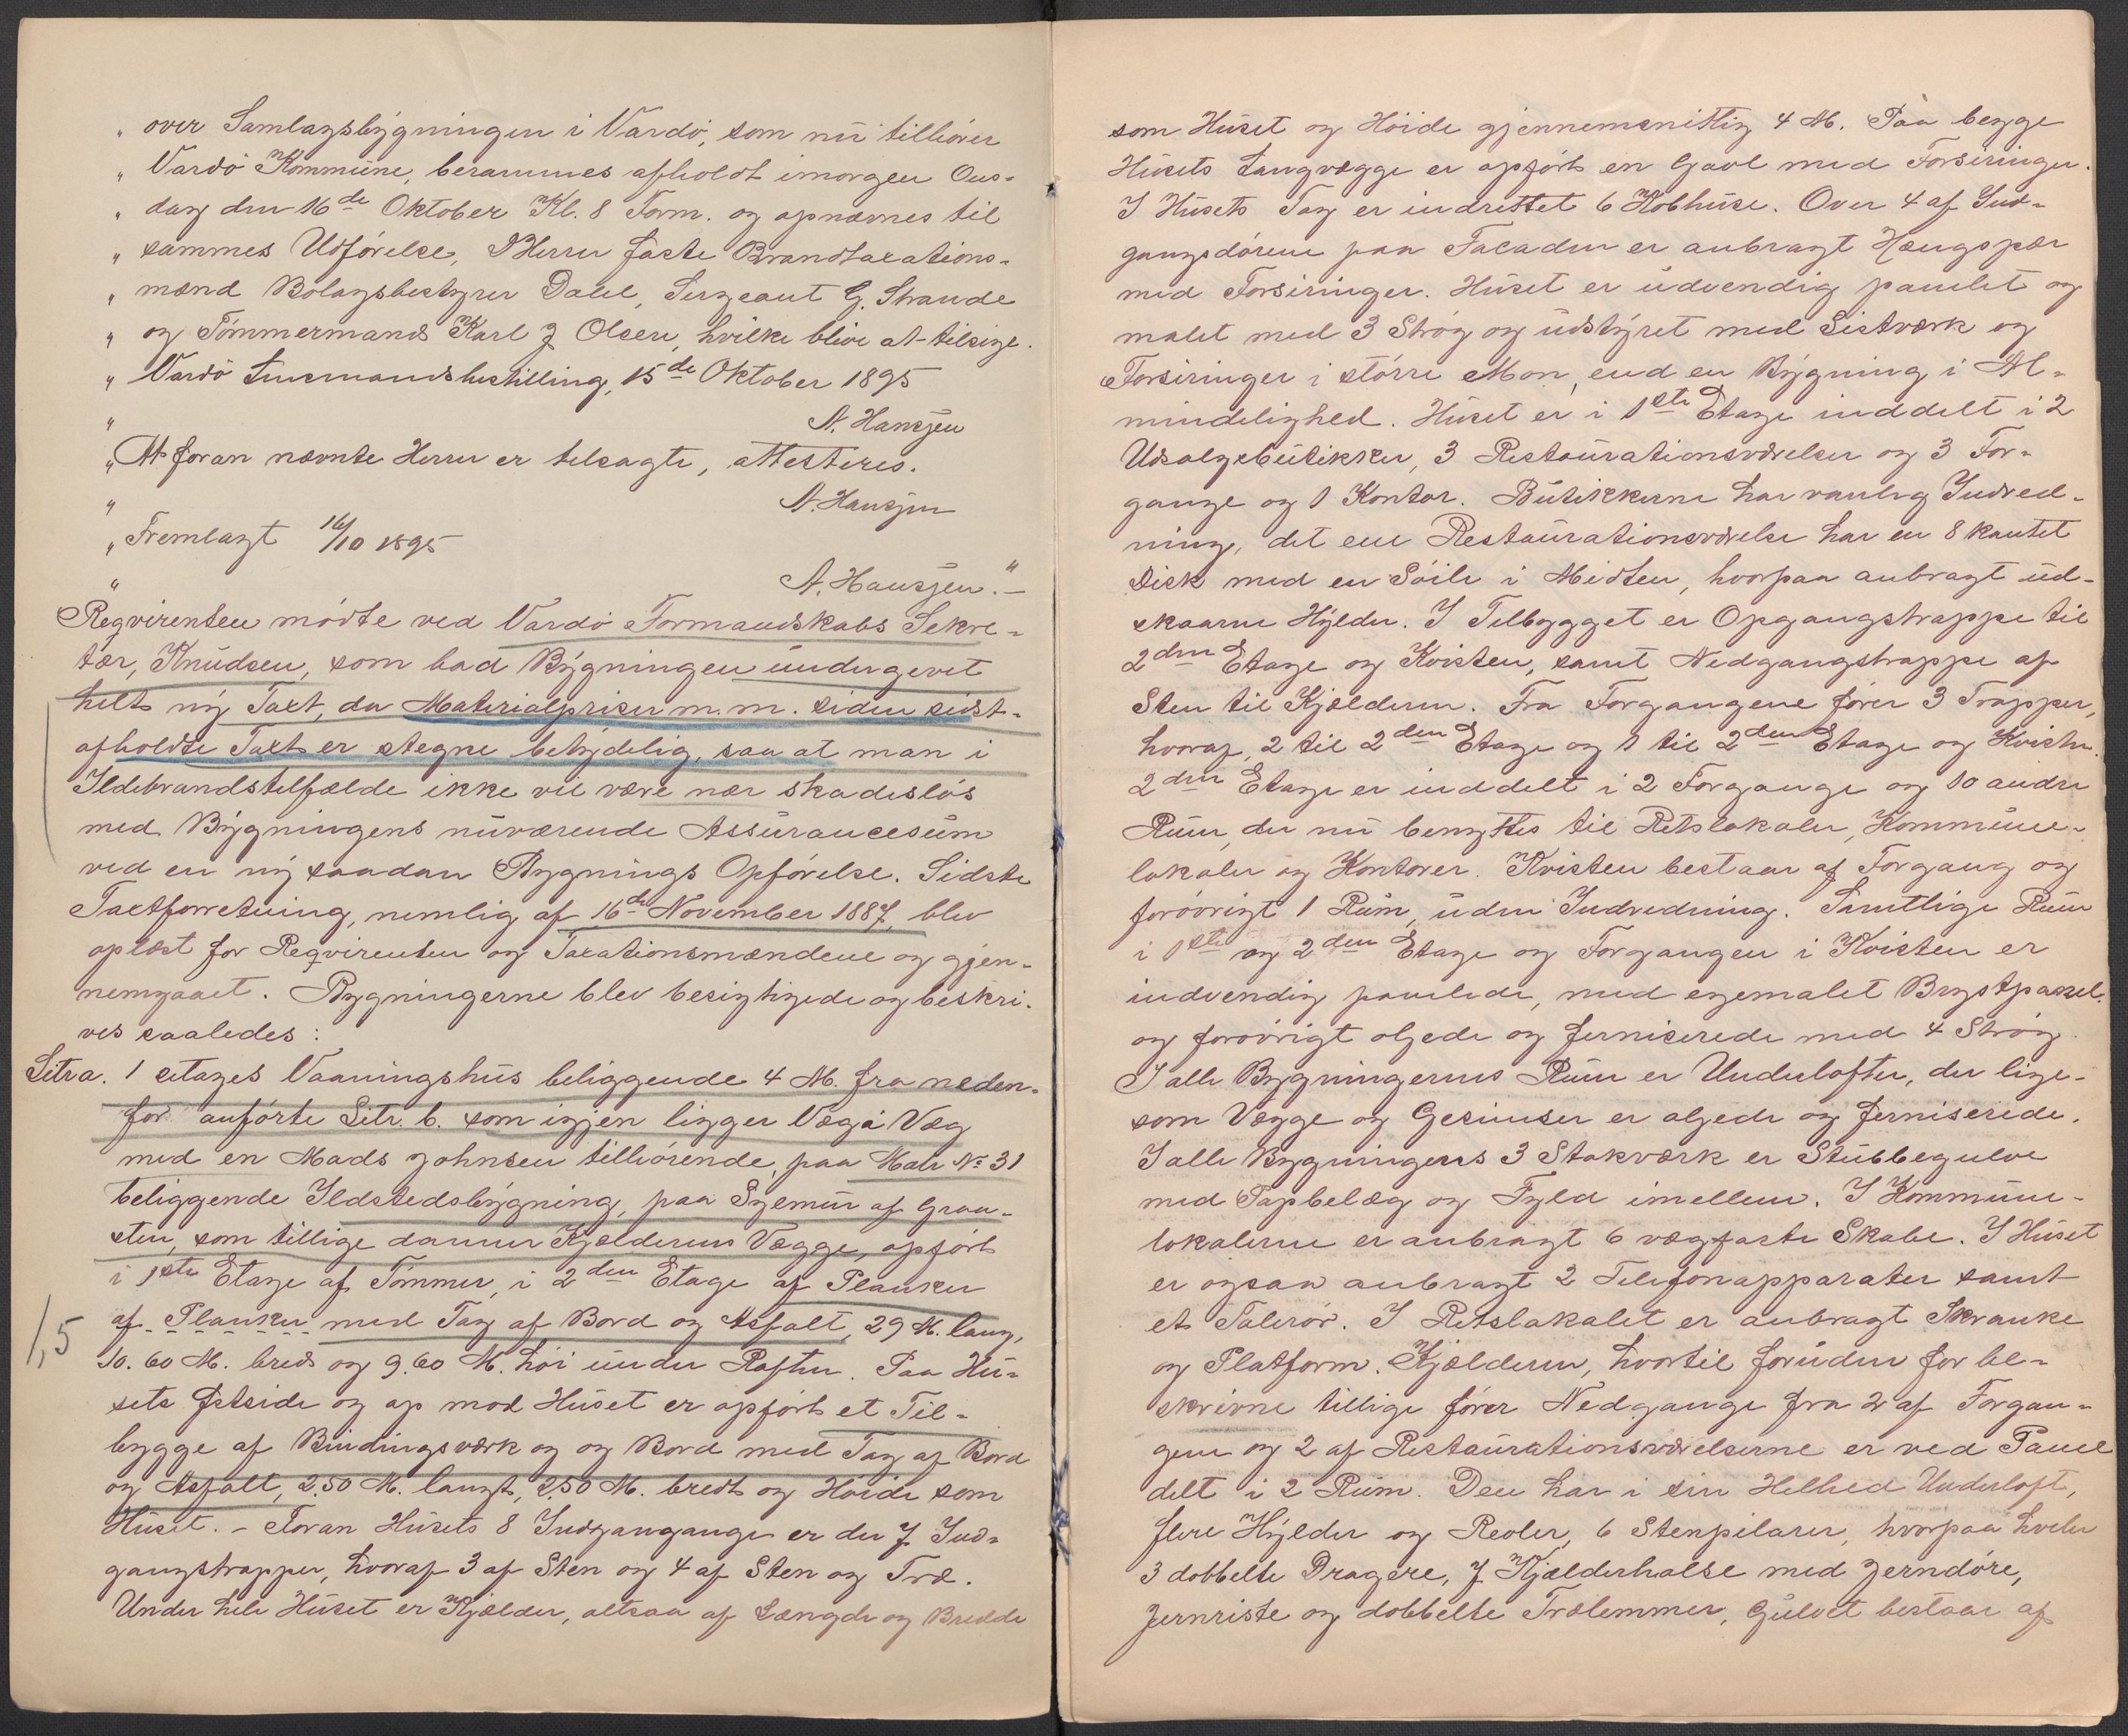 „ over Samlagsbygningen i Vardö, som nu tilhörer
„ Vardö Kommune, berammes afholdt imorgen Ons-
„ dag den 16de Oktober Kl. 8 Form. og opnævnes til
„ sammes Udförelse, DHerrer faste Brandtaxations-
„ mænd Bolagsbestyrer Dahl, Sergeant G. Strande
„ og Tömmermand Karl J Olsen, hvilke blive at tilsige.
„ Vardö Lensmandsbestilling, 15de Oktober 1895
„ A. Hansjen
„ At foran nævnte Herrer er tilsagte, attesteres.
„ A. Hansjen
„ Fremlagt 16/10 1895
„ A. Hansjen." –
Reqvirenten mödte ved Vardö Formandskabs Sekre-
tær, Knudsen, som bad Bygningen undergivet
helt ny Taxt, da Materialpriser m. m. siden sidst-
afholdte Taxt er stegne betydelig, saa at man i
Ildebrandstilfælde ikke vil være nær skadeslös
med Bygningens nuværende Assurancesum
ved en ny saadan Bygnings Opförelse. Sidste
Taxtforretning, nemlig af 16de November 1887, blev
oplæst for Reqvirenten og Taxationsmændene og gjen-
nemgaaet. Bygningerne blev besigtigede og beskri-
ves saaledes:
Litra. 1 etages Vaaningshus beliggende 4 M. fra neden-
for anförte Litr. b. som igjen ligger Væg i Væg
med en Mads Johnsen tilhörende, paa Matr No 31
beliggende Ildstedsbygning, paa Sylemur af Graa-
sten, som tillige danner Kjælderens Vægge, opfört
i 1ste Etage af Tömmer, i 2den Etage af Planker
af Planker med Tag af Bord og Asfalt, 29 M. lang,
1,5
10.60 M. bred og 9.60 M. höi under Raften. Paa Hu-
sets Östside og op mod Huset er opfört et Til-
bygge af Bindingsværk og og Bord med Tag af Bord
og Asfalt, 2.50 M. langt, 2.50 M. bredt og Höide som
Huset. – Foran Husets 8 Indgangange er der 7 Ind-
gangstrapper, hvoraf 3 af Sten og 4 af Sten og Træ.
Under hele Huset er Kjælder, altsaa af Længde og Bredde
som Huset og Höide gjennemsnitlig 4 M. Paa begge
Husets Langvægge er opfört en Gavl med Forsiringer.
I Husets Tag er indrettet 6 Kobhuse. Over 4 af Ind-
gangsdörene paa Facaden er anbragt Hængspær
med Forsiringer. Huset er udvendig panelet og
malet med 3 Strög og udstyret med Listværk og
Forsiringer i större Mon, end en Bygning i Al-
mindelighed. Huset er i 1ste Etage inddelt i 2
Udsalgsbutikker, 3 Restaurationsværelser og 3 For-
gange og 1 Kontor. Butikkerne har vanlig Indred-
ning, det ene Restaurationsværelse har en 8 kantet
Disk med en Söile i Midten, hvorpaa anbragt ud-
skaarne Hylder. I Tilbygget er Opgangstrappe til
2den Etage og Kvisten, samt Nedgangstrappe af
Sten til Kjælderen. Fra Forgangene förer 3 Trapper,
hvoraf 2 til 2den Etage og 1 til 2den Etage og Kvisten.
2den Etage er inddelt i 2 Forgange og 10 andre
Rum, der nu benyttes til Retslokaler, Kommune-
lokaler og Kontorer. Kvisten bestaar af Forgang og
forövrigt 1 Rum, uden Indredning. Samtlige Rum
i 1ste og 2den Etage og Forgangen i Kvisten er
indvendig panelede, med egemalet Brystpanel.
og forövrigt oljede og ferniserede med 4 Strög.
I alle Bygningernes Rum er Underlofter, der lige-
som Vægge og Gesimser er oljede og ferniserede.
I alle Bygningens 3 Stokværk er Stubbegulve
med Papbelæg og Fyld imellem. I Kommune-
lokalerne er anbragt 6 vægfaste Skabe. I Huset
er ogsaa anbragt 2 Telefonapparater samt
et Talerör. I Retslokalet er anbragt Skranke
og Platform. Kjælderen, hvortil foruden for be-
skrevne tillige förer Nedgange fra 2 af Forgan-
gene og 2 af Restaurationsværelserne er ved Panel
delt i 2 Rum. Den har i sin Helhed Underloft,
flere Hylder og Reoler, 6 Stenpilarer, hvorpaa hviler
3 dobbelte Dragere, 7 Kjælderhalse med Jerndöre,
Jernriste og dobbelte Trælemmer, Gulvet bestaar af